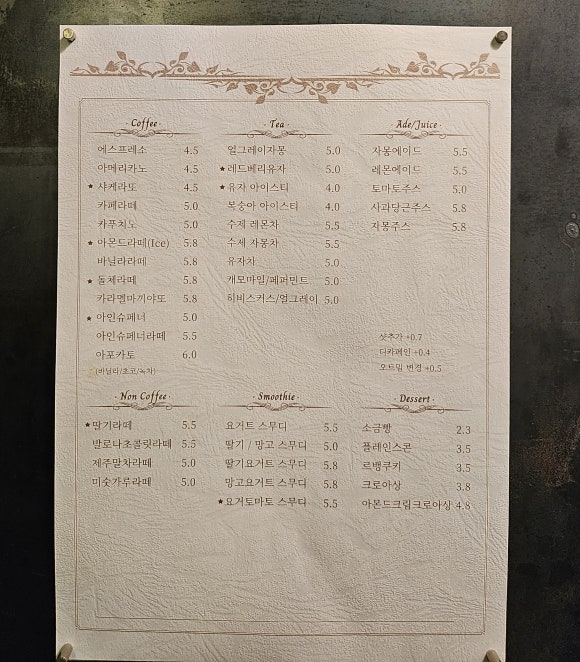 · Coffee ·
에스프레소 4.5
아메리카노 4.5
★ 샤케라또 4.5
카페라떼 5.0
카푸치노 5.0
★ 아몬드라떼(Ice) 5.8
바닐라라떼 5.8
★ 돌체라떼 5.8
카라멜마끼야또 5.8
★ 아인슈페너 5.0
아인슈페너라떼 5.5
아포카토 6.0
(바닐라/초코/녹차)
· Tea ·
얼그레이자몽 5.0
★ 레드베리유자 5.0
★ 유자 아이스티 4.0
복숭아 아이스티 4.0
수제 레몬차 5.5
수제 자몽차 5.5
유자차 5.0
캐모마일/페퍼민트 5.0
히비스커스/얼그레이 5.0
· Ade/Juice ·
자몽에이드 5.5
레몬에이드 5.5
토마토주스 5.0
사과당근주스 5.8
자몽주스 5.8
샷추가 +0.7
디카페인 +0.4
오트밀 변경 +0.5
· Non Coffee ·
★ 딸기라떼 5.5
발로나초콜릿라떼 5.5
제주말차라떼 5.0
미숫가루라떼 5.0
· Smoothie ·
요거트 스무디 5.5
딸기 / 망고 스무디 5.0
딸기요거트 스무디 5.8
망고요거트 스무디 5.8
★ 요거토마토 스무디 5.5
· Dessert ·
소금빵 2.3
플레인스콘 3.5
르뱅쿠키 3.5
크로아상 3.8
아몬드크림크로아상 4.8